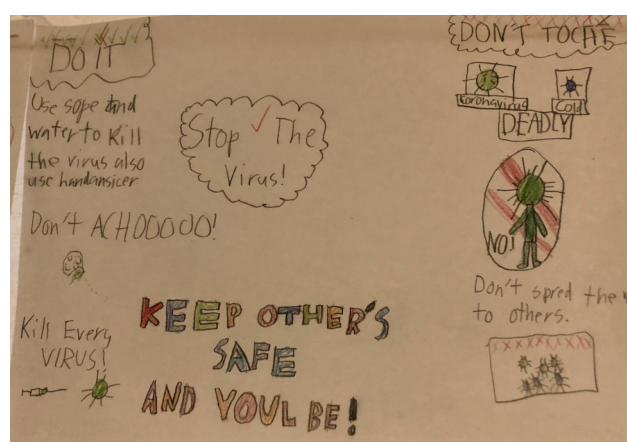 DO IT
Use sope and
water to kill
the virus also
use handansicer
Don't ACHOOOOO!
Kill Every
VIRUS!
Stop The
Virus!
KEEP OTHER'S
SAFE
AND YOUL BE!
DON'T
Coronavirus
Cold
DEADLY
NO!
Don't spred the
to others.